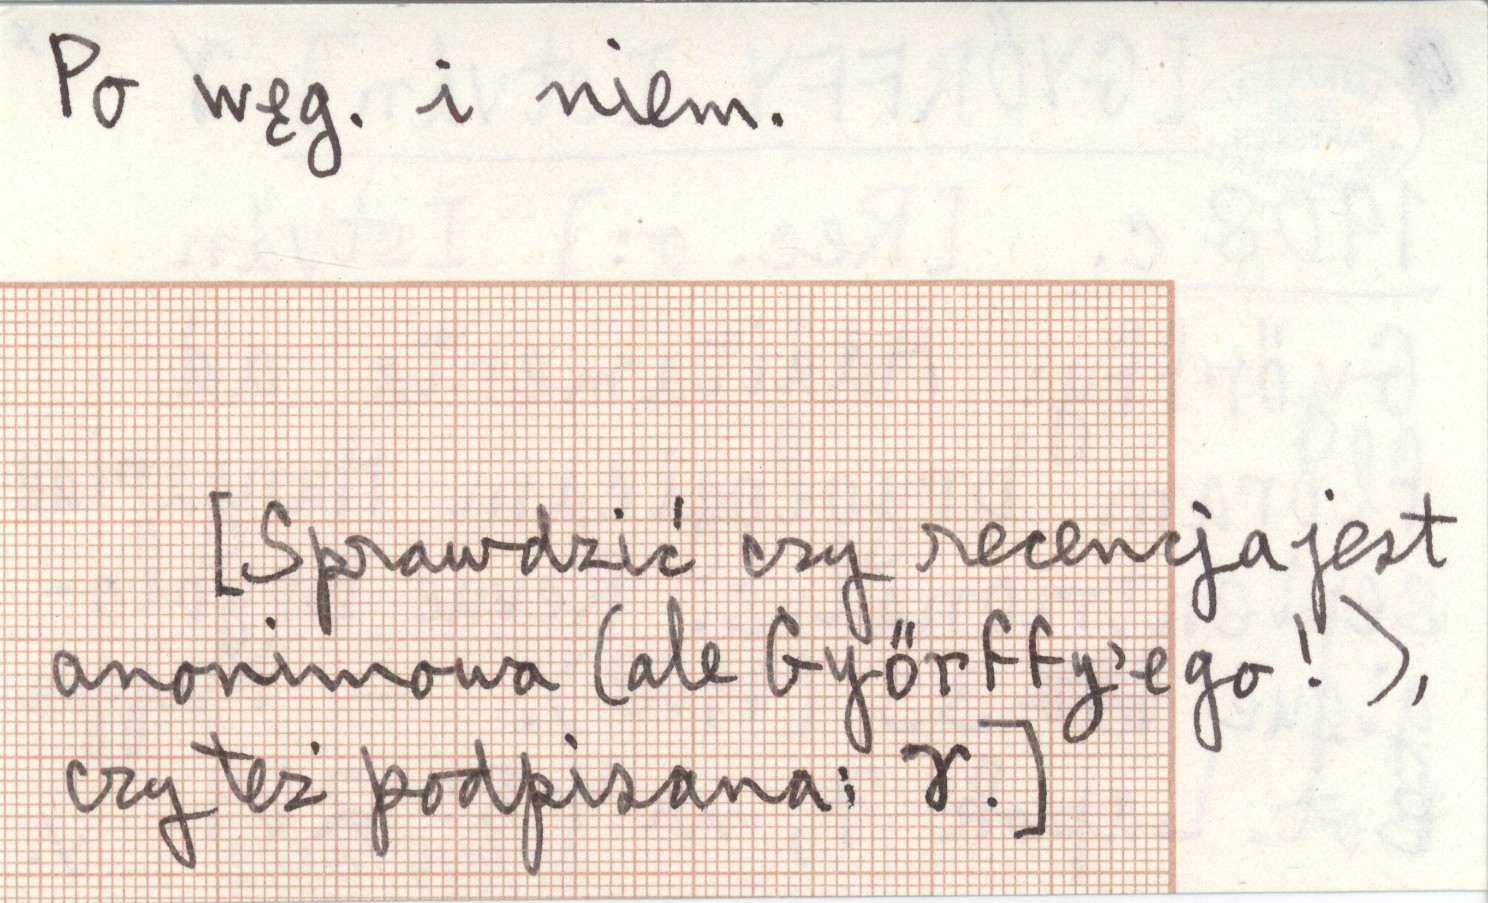 Po węg. i niem.
[Sprawdzić czy recenzja jest
anonimowa (ale Győrffy'ego!),
czy też podpisana: γ.]